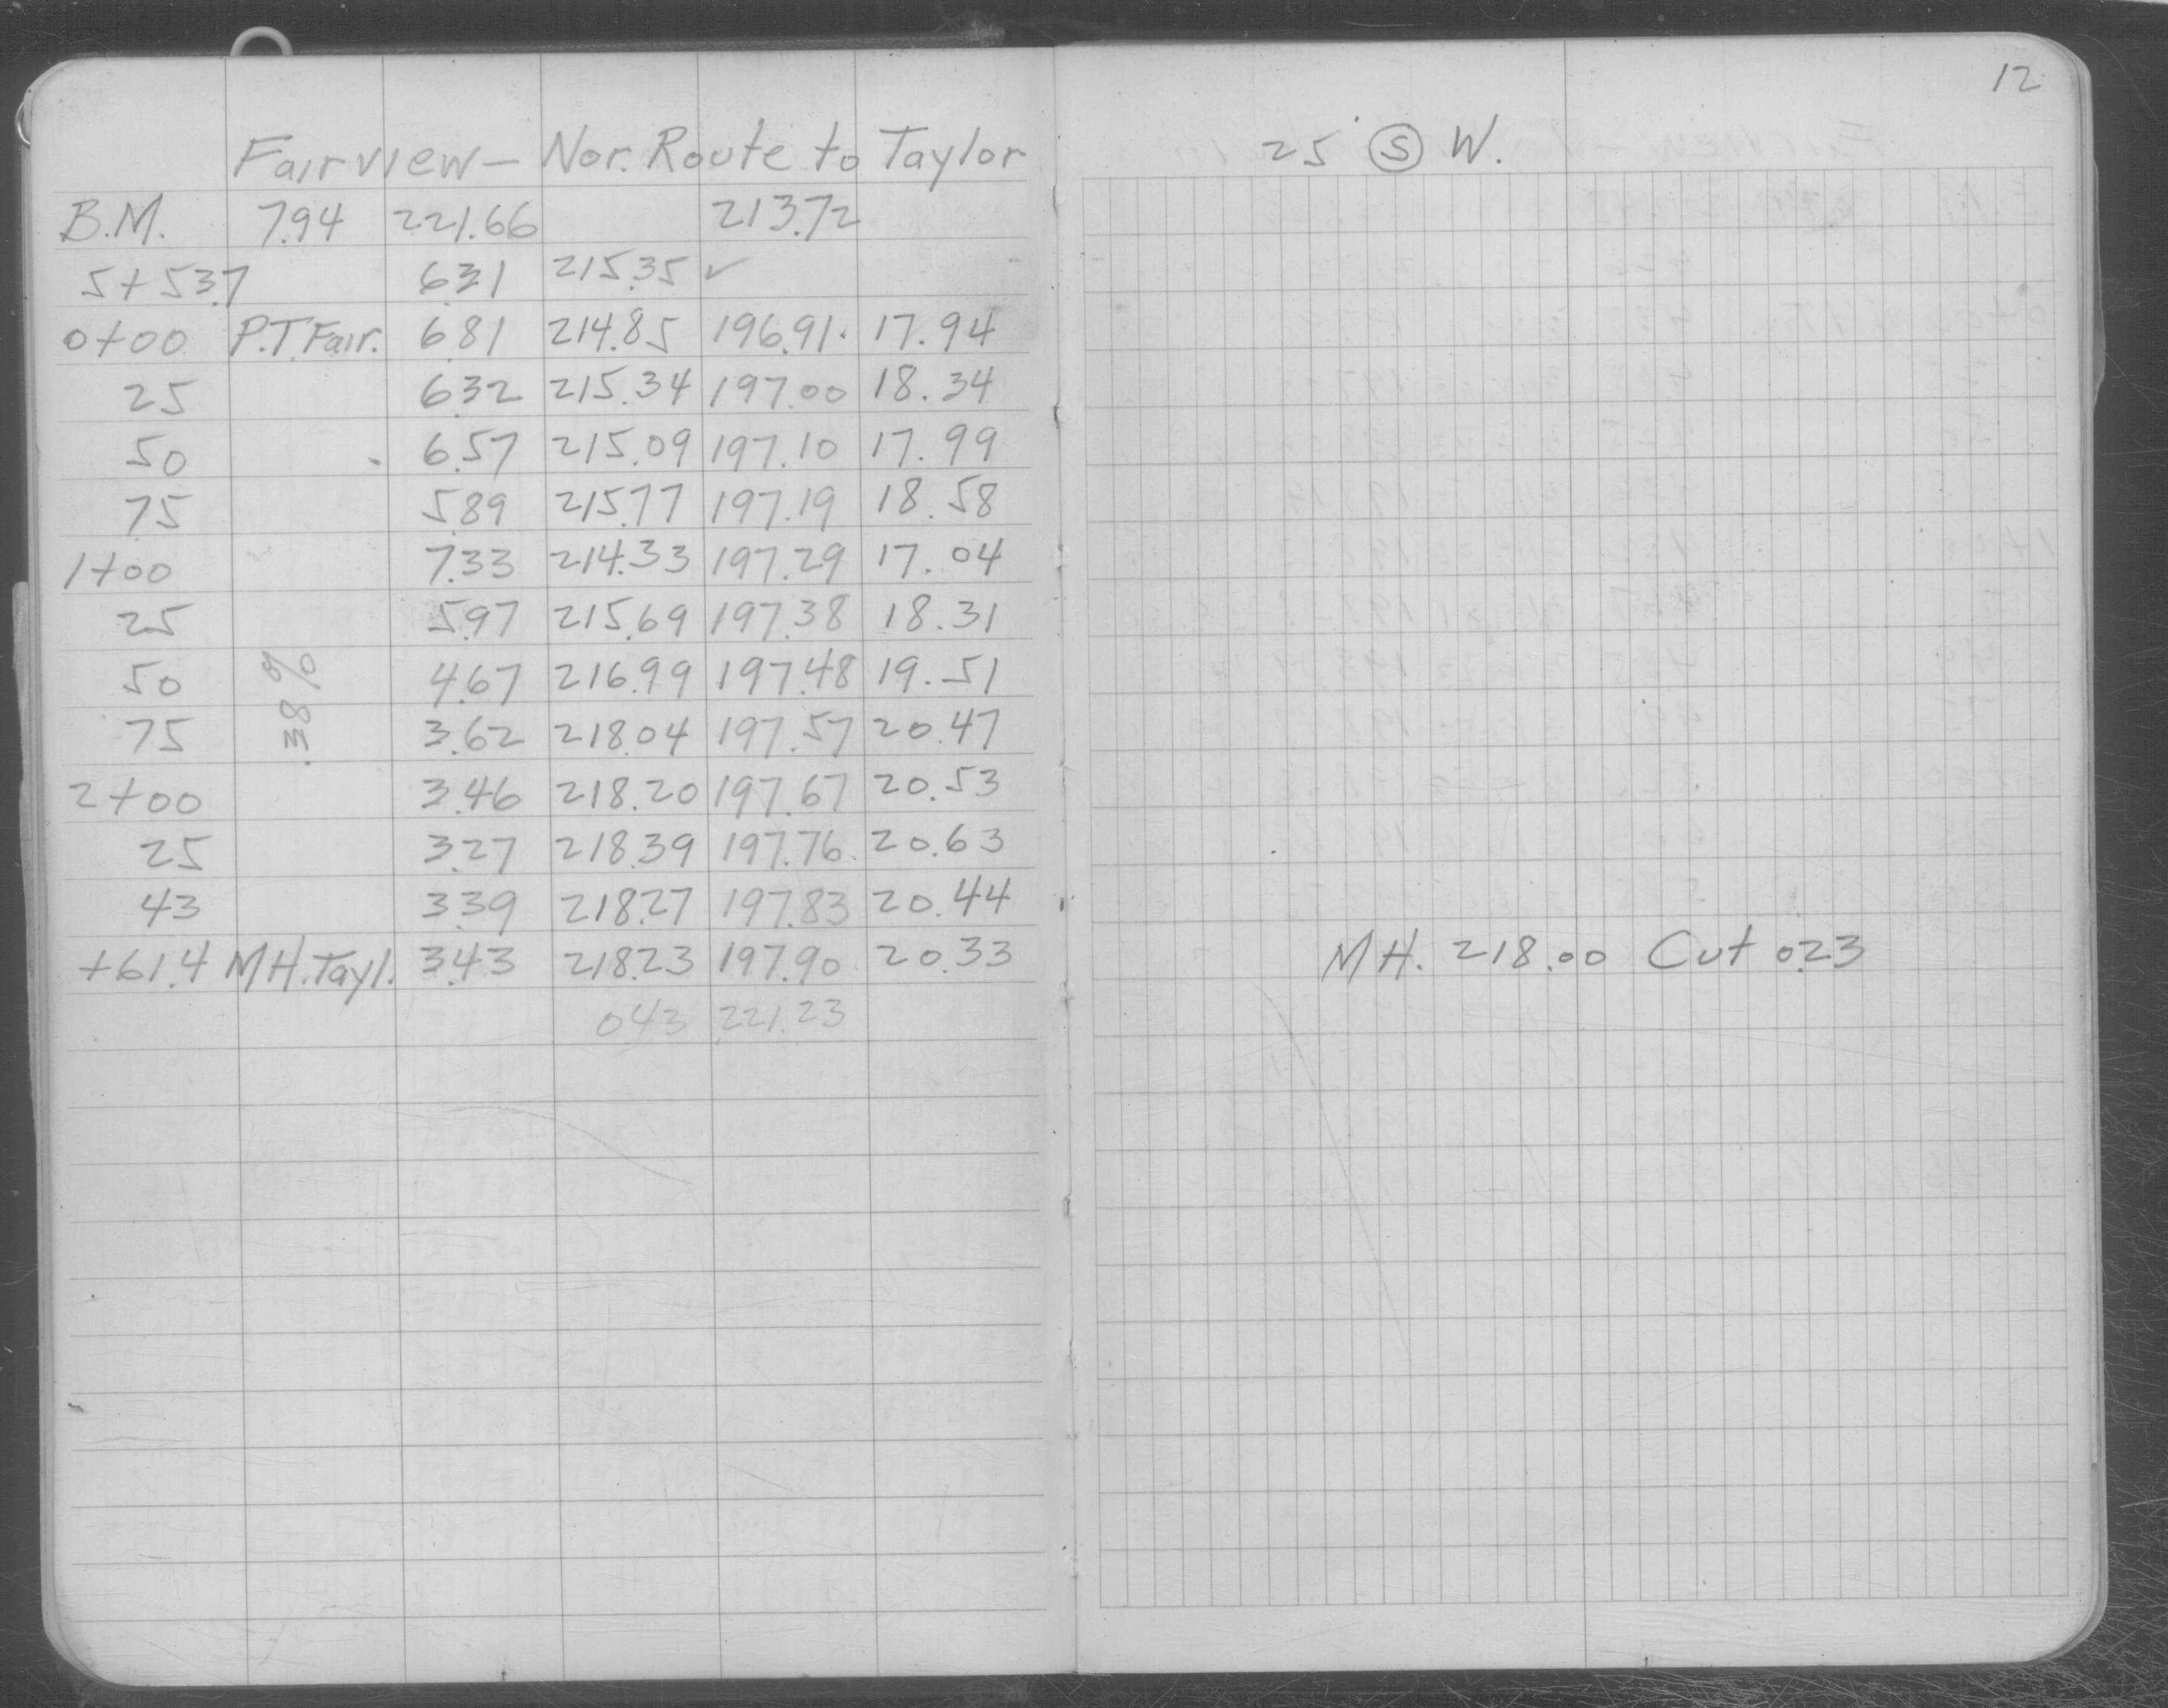 12
Fairview - Nor. Route to Taylor
B.M. 7.94 221.66 213.72
5+53.7 6.31 215.35 ✓
0+00 P.T. Fair. 6.81 214.85 196.91 17.94
25 6.32 215.34 197.00 18.34
50 6.57 215.09 197.10 17.99
75 5.89 215.77 197.19 18.58
1+00 7.33 214.33 197.29 17.04
25 5.97 215.69 197.38 18.31
50 4.67 216.99 197.48 19.51
75 3.62 218.04 197.57 20.47
.38%
2+00 3.46 218.20 197.67 20.53
25 3.27 218.39 197.76 20.63
43 3.39 218.27 197.83 20.44
+61.4 MH. Tayl. 3.43 218.23 197.90 20.33
0.43 221.23
25' Ⓢ W.
MH. 218.00 Cut 0.23